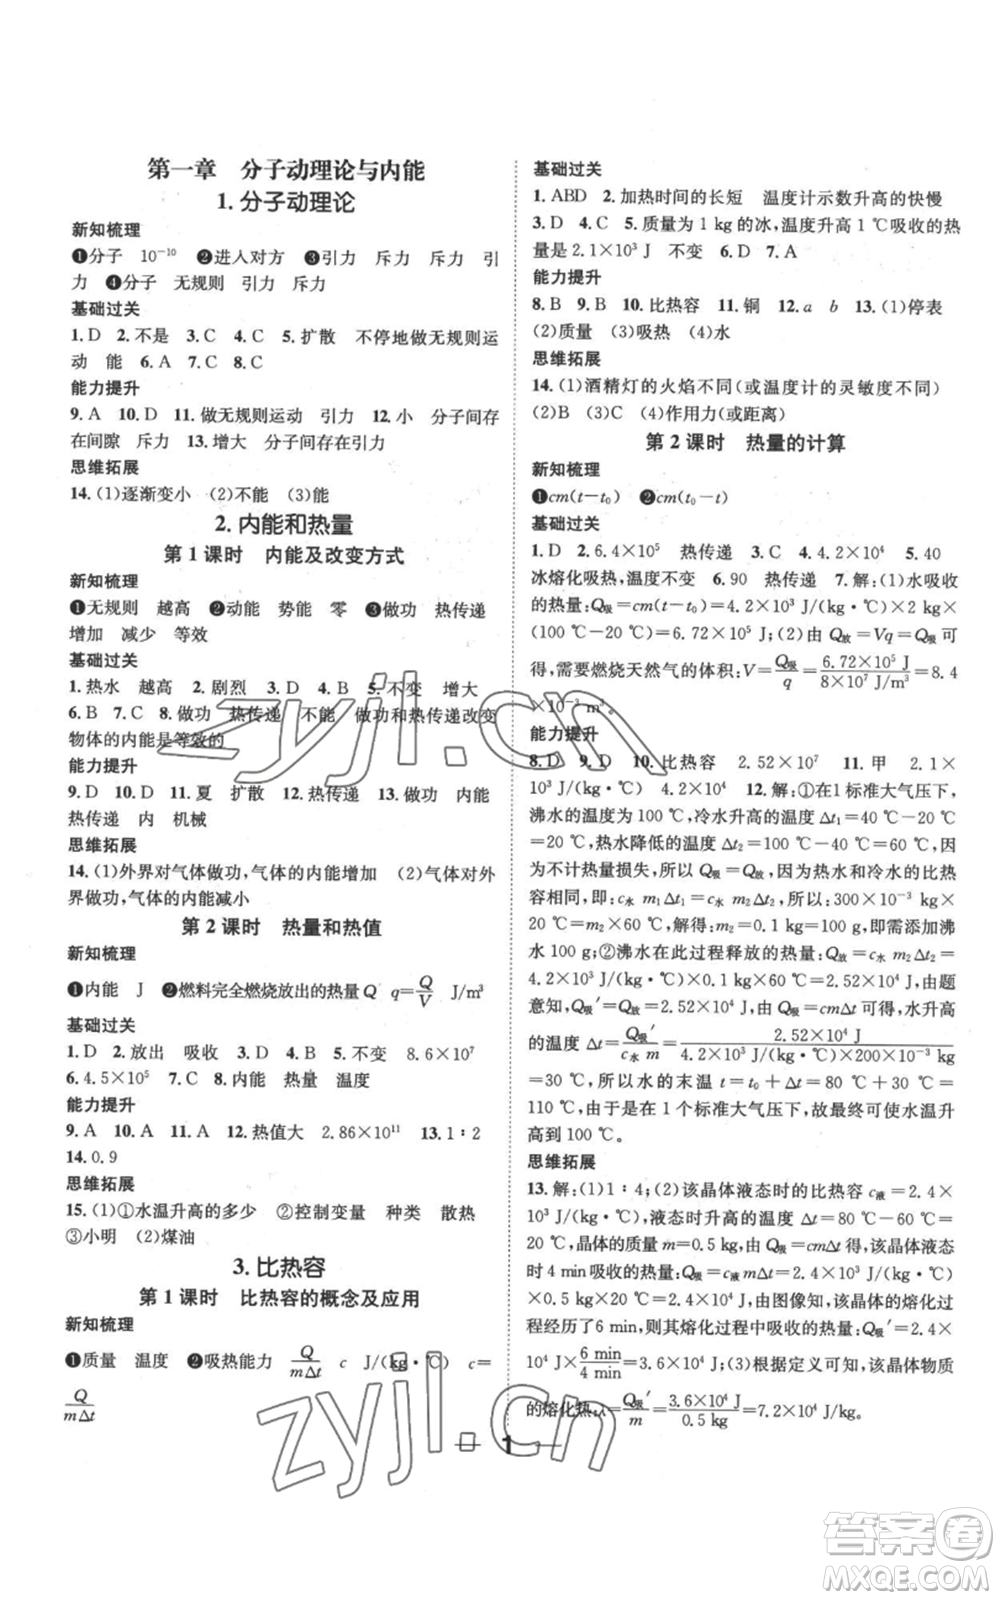 第一章 分子动理论与内能
1. 分子动理论
新知梳理
❶分子 10⁻¹⁰ ❷进入对方 ❸引力 斥力 斥力 引
力 ❹分子 无规则 引力 斥力
基础过关
1. D 2. 不是 3. C 4. C 5. 扩散 不停地做无规则运
动 能 6. A 7. C 8. C
能力提升
9. A 10. D 11. 做无规则运动 引力 12. 小 分子间存
在间隙 斥力 13. 增大 分子间存在引力
思维拓展
14. (1)逐渐变小 (2)不能 (3)能
2. 内能和热量
第 1 课时 内能及改变方式
新知梳理
❶无规则 越高 ❷动能 势能 零 ❸做功 热传递
增加 减少 等效
基础过关
1. 热水 越高 2. 剧烈 3. B 4. B 5. 不变 增大
6. B 7. C 8. 做功 热传递 不能 做功和热传递改变
物体的内能是等效的
能力提升
9. D 10. B 11. 夏 扩散 12. D 13. 做功 内能
热传递 内 机械
思维拓展
14. (1)外界对气体做功,气体的内能增加 (2)气体对外
界做功,气体的内能减小
第 2 课时 热量和热值
新知梳理
❶内能 J ❷燃料完全燃烧放出的热量 Q q=Q/V J/m³
基础过关
1. D 2. 放出 吸收 3. D 4. B 5. 不变 8.6×10⁷
6. 4.5×10⁵ 7. C 8. 内能 热量 温度
能力提升
9. A 10. A 11. A 12. 热值大 2.86×10¹¹ 13. 1∶2
14. 0.9
思维拓展
15. (1)①水温升高的多少 ②控制变量 种类 散热
③小明 (2)煤油
3. 比热容
第 1 课时 比热容的概念及应用
新知梳理
❶质量 温度 ❷吸热能力 Q/mΔt c J/(kg·℃) c=
Q/mΔt
基础过关
1. ABD 2. 加热时间的长短 温度计示数升高的快慢
3. D 4. C 5. 质量为 1 kg 的冰,温度升高 1 ℃吸收的热
量是 2.1×10³ J 不变 6. D 7. A
能力提升
8. B 9. B 10. 比热容 11. 铜 12. a b 13. (1)停表
(2)质量 (3)吸热 (4)水
思维拓展
14. (1)酒精灯的火焰不同(或温度计的灵敏度不同)
(2)B (3)C (4)作用力(或距离)
第 2 课时 热量的计算
新知梳理
❶cm(t−t₀) ❷cm(t₀−t)
基础过关
1. D 2. 6.4×10⁵ 热传递 3. C 4. 4.2×10⁴ 5. 40
冰熔化吸热,温度不变 6. 90 热传递 7. 解:(1)水吸收
的热量:Q吸=cm(t−t₀)=4.2×10³ J/(kg·℃)×2 kg×
(100 ℃−20 ℃)=6.72×10⁵ J;(2)由 Q放=Vq=Q吸可
得,需要燃烧天然气的体积:V=Q吸/q=6.72×10⁵ J/8×10⁷ J/m³=8.4
×10⁻³ m³。
能力提升
8. D 9. D 10. 比热容 2.52×10⁷ 11. 甲 2.1×
10³ J/(kg·℃) 4.2×10⁴ 12. 解:①在1标准大气压下,
沸水的温度为 100 ℃,冷水升高的温度 Δt₁=40 ℃−20
℃=20 ℃,热水降低的温度 Δt₂=100 ℃−40 ℃=60 ℃,因
为不计热量损失,所以 Q吸=Q放,因为热水和冷水的比热
容相同,即:c水 m₁Δt₁=c水 m₂Δt₂,所以:300×10⁻³ kg
×20 ℃=m₂×60 ℃,解得:m₂=0.1 kg=100 g,即需添加沸
水 100 g;②沸水在此过程释放的热量:Q放=c水 m₂Δt₂=
4.2×10³ J/(kg·℃)×0.1 kg×60 ℃=2.52×10⁴ J,由题
意知,Q吸′=Q放=2.52×10⁴ J,由 Q吸=cmΔt 可得,水升高
的温度 Δt=Q吸′/c水 m=2.52×10⁴ J/4.2×10³ J/(kg·℃)×200×10⁻³ kg
=30 ℃,所以水的末温 t=t₀+Δt=80 ℃+30 ℃=
110 ℃,由于是在 1 个标准大气压下,故最终可使水温升
高到 100 ℃。
思维拓展
13. 解:(1)1∶4;(2)该晶体液态时的比热容 c液=2.4×
10³ J/(kg·℃),液态时升高的温度 Δt=80 ℃−60 ℃=
20 ℃,晶体的质量 m=0.5 kg,由 Q吸=cmΔt 可得,该晶体液态
时 4 min 吸收的热量:Q吸=c液 mΔt=2.4×10³ J/(kg·℃)
×0.5 kg×20 ℃=2.4×10⁴ J,由图像知,该晶体的熔化过
程经历了6 min,则其熔化过程中吸收的热量:Q吸′=2.4×
10⁴ J×6 min/4 min=3.6×10⁴ J;(3)根据定义可知,该晶体物质
的熔化热:λ=Q吸′/m=3.6×10⁴ J/0.5 kg=7.2×10⁴ J/kg。
1
zyjl.cn
zyjl.cn
答案圈
MXQE.COM